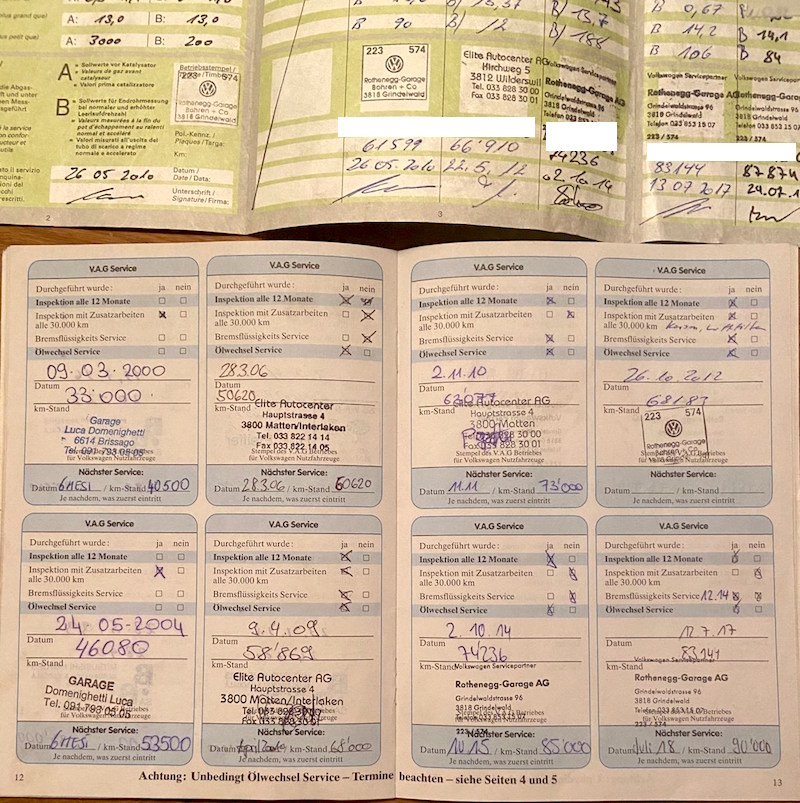 A: 13,0 B: 13,0
plus petit que)
A: 3000 B: 200
A
Sollwerte vor Katalysator
Valeurs de gaz avant catalyseur
Valori prima catalizzatore
Betriebsstempel
223 574
Rothenegg-Garage
Bohren + Co
3818 Grindelwald
B
Sollwerte für Endrohrmessung bei normaler und erhöhter Leerlaufdrehzahl
Pol.-Kennz. /
Plaques / Targa:
Km:
26 05 2010
Datum /
Date / Data:
Unterschrift /
Signature / Firma:
2
B 90
B/ 12
B/ 188
223 574
Rothenegg-Garage
Bohren + Co
3818 Grindelwald
Elite Autocenter AG
Kirchweg 5
3812 Wilderswil
Tel. 033 828 30 00
Fax 033 828 30 01
Volkswagen Servicepartner
Rothenegg-Garage AG
Grindelwaldstrasse 96
3818 Grindelwald
61599 66'910
74236
26 05. 2010 22. 5. 12
02 10 14
3
B 0,67
B 14,2 B 14,1
B 106 B 84
Volkswagen Servicepartner
Rothenegg-Garage AG
Grindelwaldstrasse 96
3818 Grindelwald
Telefon 033 853 15 07
223 / 574
83144 87874
13 07 2017
V.A.G Service
Durchgeführt wurde: ja nein
Inspektion alle 12 Monate
Inspektion mit Zusatzarbeiten
alle 30.000 km
Bremsflüssigkeits Service
Ölwechsel Service
09. 03. 2000
Datum
33'000
km-Stand
Garage
Luca Domenighetti
6614 Brissago
Tel. 091 793 05 05
Stempel des V.A.G Betriebes
für Volkswagen Nutzfahrzeuge
Nächster Service:
Datum 6 MESI / km-Stand 40500
Je nachdem, was zuerst eintritt
V.A.G Service
Durchgeführt wurde: ja nein
Inspektion alle 12 Monate
Inspektion mit Zusatzarbeiten
alle 30.000 km
Bremsflüssigkeits Service
Ölwechsel Service
28.3.06
Datum
50620
km-Stand
Elite Autocenter
Hauptstrasse 4
3800 Matten/Interlaken
Tel. 033 822 14 14
Fax 033 822 14 05
Stempel des V.A.G Betriebes
für Volkswagen Nutzfahrzeuge
Nächster Service:
Datum 28.3.06 / km-Stand 60620
Je nachdem, was zuerst eintritt
V.A.G Service
Durchgeführt wurde: ja nein
Inspektion alle 12 Monate
Inspektion mit Zusatzarbeiten
alle 30.000 km
Bremsflüssigkeits Service
Ölwechsel Service
2.11.10
Datum
63077
km-Stand
Elite Autocenter AG
Hauptstrasse 4
3800 Matten
Stempel des V.A.G Betriebes
für Volkswagen Nutzfahrzeuge
Nächster Service:
Datum 11.11 / km-Stand 73'000
Je nachdem, was zuerst eintritt
V.A.G Service
Durchgeführt wurde: ja nein
Inspektion alle 12 Monate
Inspektion mit Zusatzarbeiten
alle 30.000 km
Bremsflüssigkeits Service
Ölwechsel Service
26.10.2012
Datum
68187
km-Stand
223 574
Rothenegg-Garage
3818 Grindelwald
Nächster Service:
Datum / km-Stand
Je nachdem, was zuerst eintritt
V.A.G Service
Durchgeführt wurde: ja nein
Inspektion alle 12 Monate
Inspektion mit Zusatzarbeiten
alle 30.000 km
Bremsflüssigkeits Service
Ölwechsel Service
24-05-2004
Datum
46080
km-Stand
GARAGE
Domenighetti Luca
Tel. 091 793 05 05
für Volkswagen Nutzfahrzeuge
Nächster Service:
Datum 6 MESI / km-Stand 53500
Je nachdem, was zuerst eintritt
V.A.G Service
Durchgeführt wurde: ja nein
Inspektion alle 12 Monate
Inspektion mit Zusatzarbeiten
alle 30.000 km
Bremsflüssigkeits Service
Ölwechsel Service
9.4.09
Datum
58'869
km-Stand
Elite Autocenter AG
Hauptstrasse 4
3800 Matten/Interlaken
für Volkswagen Nutzfahrzeuge
Nächster Service:
Datum / km-Stand 68'000
Je nachdem, was zuerst eintritt
V.A.G Service
Durchgeführt wurde: ja nein
Inspektion alle 12 Monate
Inspektion mit Zusatzarbeiten
alle 30.000 km
Bremsflüssigkeits Service
Ölwechsel Service
2. 10. 14
Datum
74236
km-Stand
Volkswagen Servicepartner
Rothenegg-Garage AG
Grindelwaldstrasse 96
3818 Grindelwald
Telefon 033 853 15 07
223 / 574
Nächster Service:
Datum 10.15 / km-Stand 85'000
Je nachdem, was zuerst eintritt
V.A.G Service
Durchgeführt wurde: ja nein
Inspektion alle 12 Monate
Inspektion mit Zusatzarbeiten
alle 30.000 km
Bremsflüssigkeits Service 12.14
Ölwechsel Service
12.7.17
Datum
83141
km-Stand
Volkswagen Servicepartner
Rothenegg-Garage AG
Grindelwaldstrasse 96
3818 Grindelwald
Telefon 033 853 15 07
223 / 574
Nächster Service:
Datum Juli 18 / km-Stand 90'000
Je nachdem, was zuerst eintritt
12
Achtung: Unbedingt Ölwechsel Service – Termine beachten – siehe Seiten 4 und 5
13